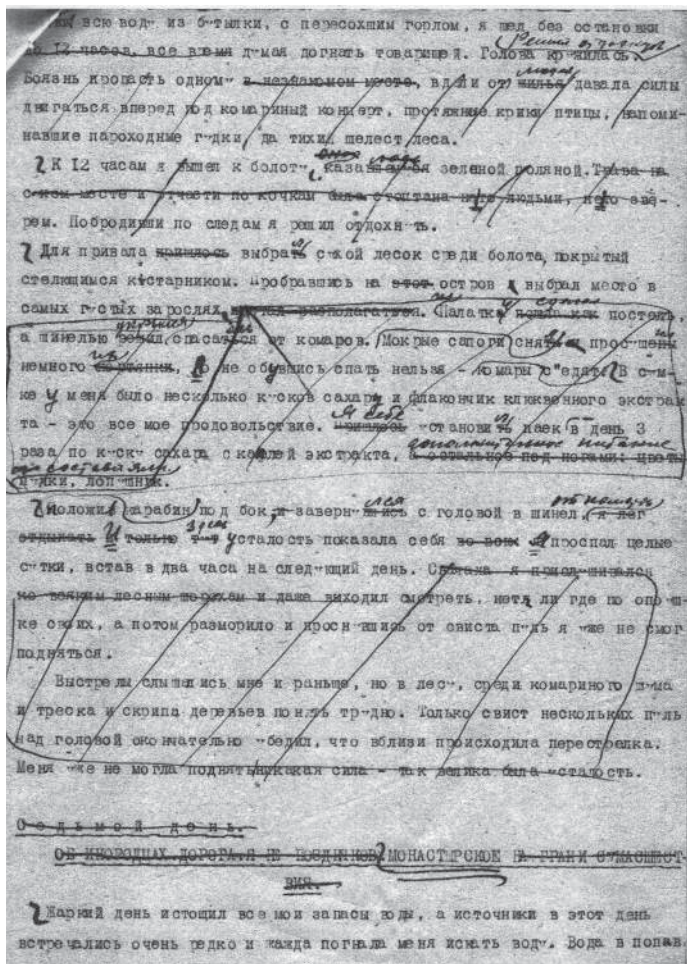 всю воду из бутылки, с пересохшим горлом, я шел без остановки
до 12 часов, все время думая догнать товарищей. Голова кружилась.
Боязнь пропасть одному в незнакомом месте, вдали от жилья людей давала силы
двигаться вперед под комариный концерт, протяжные крики птицы, напоми-
навшие пароходные гудки, да тихий шелест леса.
К 12 часам я вышел к болоту, оно зеленой поляной. Трава на
месте и отчасти по кочкам была стоптана не то людьми, не то зве-
рем. Побродивши по следам я решил отдохнуть.
Для привала пришлось выбрать сухой лесок среди болота, покрытый
стелющимся кустарником. Пробравшись на этот остров выбрал место в
самых густых зарослях и стал располагаться. Палатка пошла как постель,
укрылся
а шинелью решил спасаться от комаров. Мокрые сапоги снять просушены
немного портянки, но не обувшись спать нельзя - комары с"едят. В сум-
ке у меня было несколько кусков сахару и флакончик клюквенного экстрак
та - это все мое продовольствие. Пришлось Я себе установить паек в день 3
дополнительное питание
раза по куску сахара с каплей экстракта, а остальное под ногами: цветы
составляли
лопушник.
Положив карабин под бок, и завернувшись лся с головой в шинель, я лег
отдыхать И только тут здесь усталость показала себя во всю Я проспал целые
сутки, встав в два часа на следующий день. Сначала я прислушивался
ко всяким лесным шорохам и даже выходил смотреть, нет ли где по опуш-
ке своих, а потом разморило и проснувшись от свиста пуль я уже не смог
подняться.
Выстрелы слышались мне и раньше, но в лесу, среди комариного шума
и треска и скрипа деревьев понять трудно. Только свист нескольких пуль
над головой окончательно убедил, что вблизи происходила перестрелка.
Меня уже не могла поднять никакая сила - так велика была усталость.
Седьмой день.
МОНАСТЫРСКОЕ НА ГРАНИ СУМАСШЕСТ-
ВИЯ.
Жаркий день истощил все мои запасы воды, а источники в этот день
встречались очень редко и жажда погнала меня искать воду. Вода в попав.